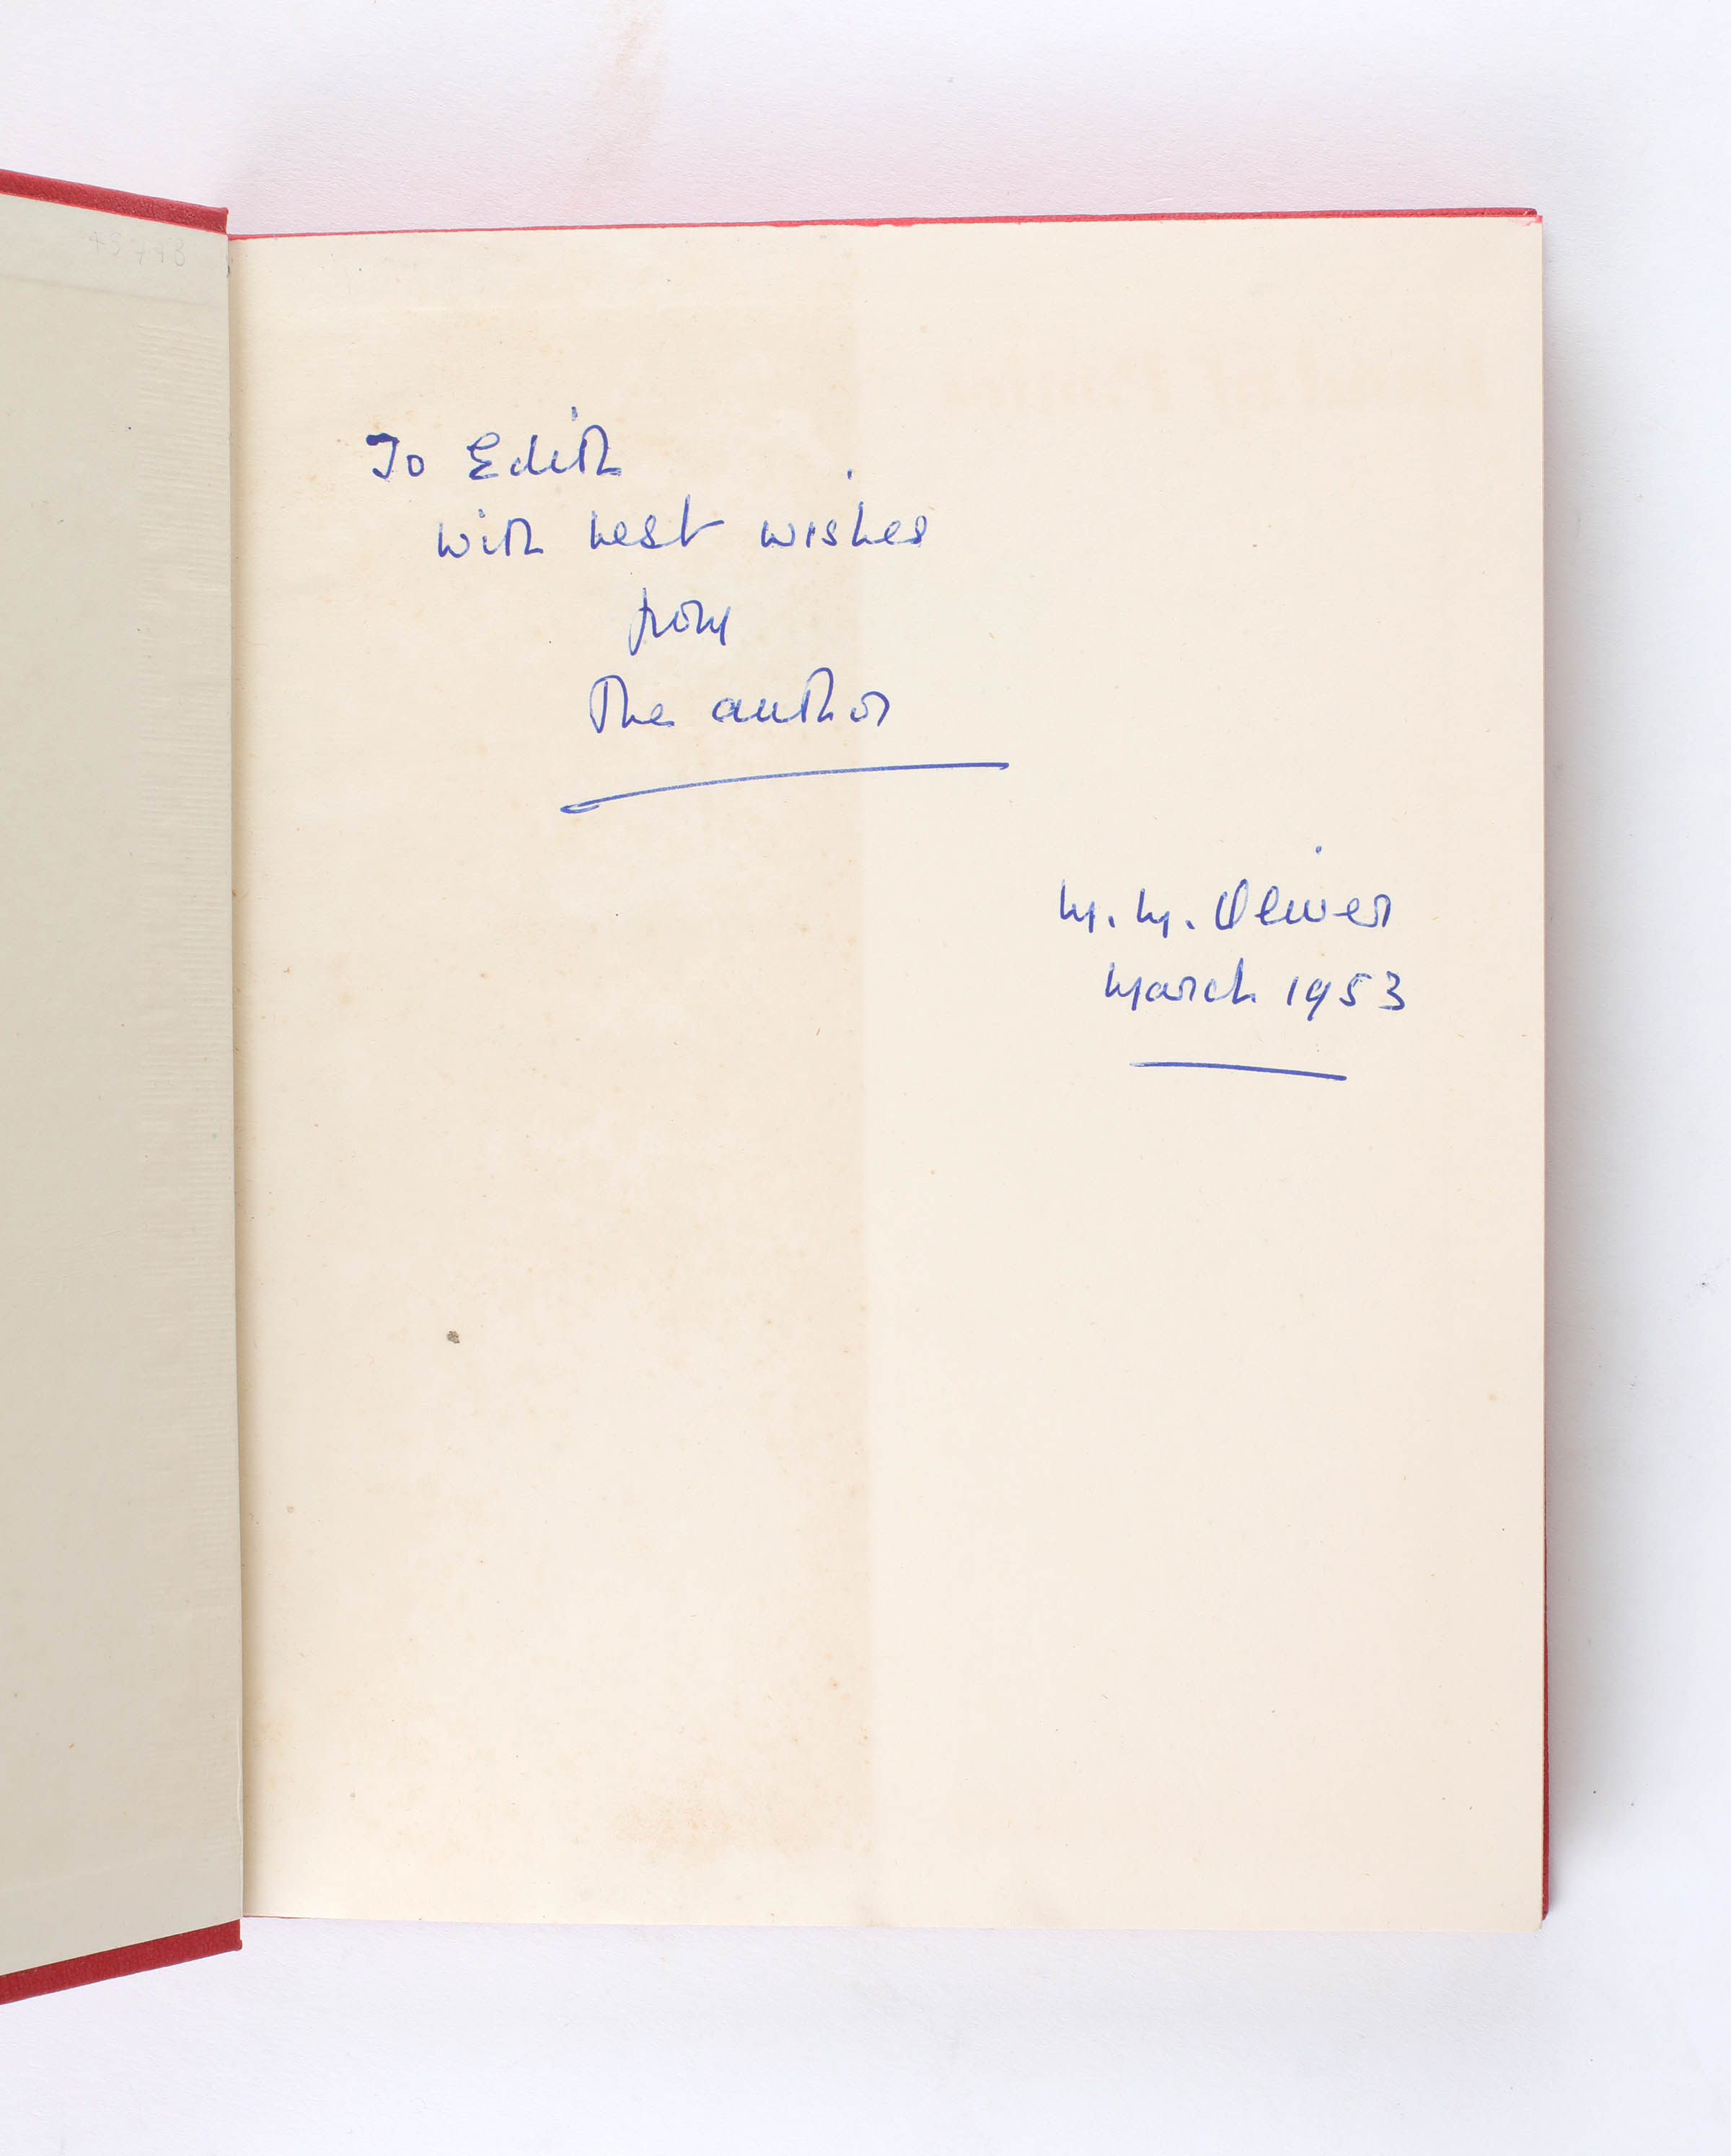 To Edith
with best wishes
from
The author
M. M. Oliver
March 1953